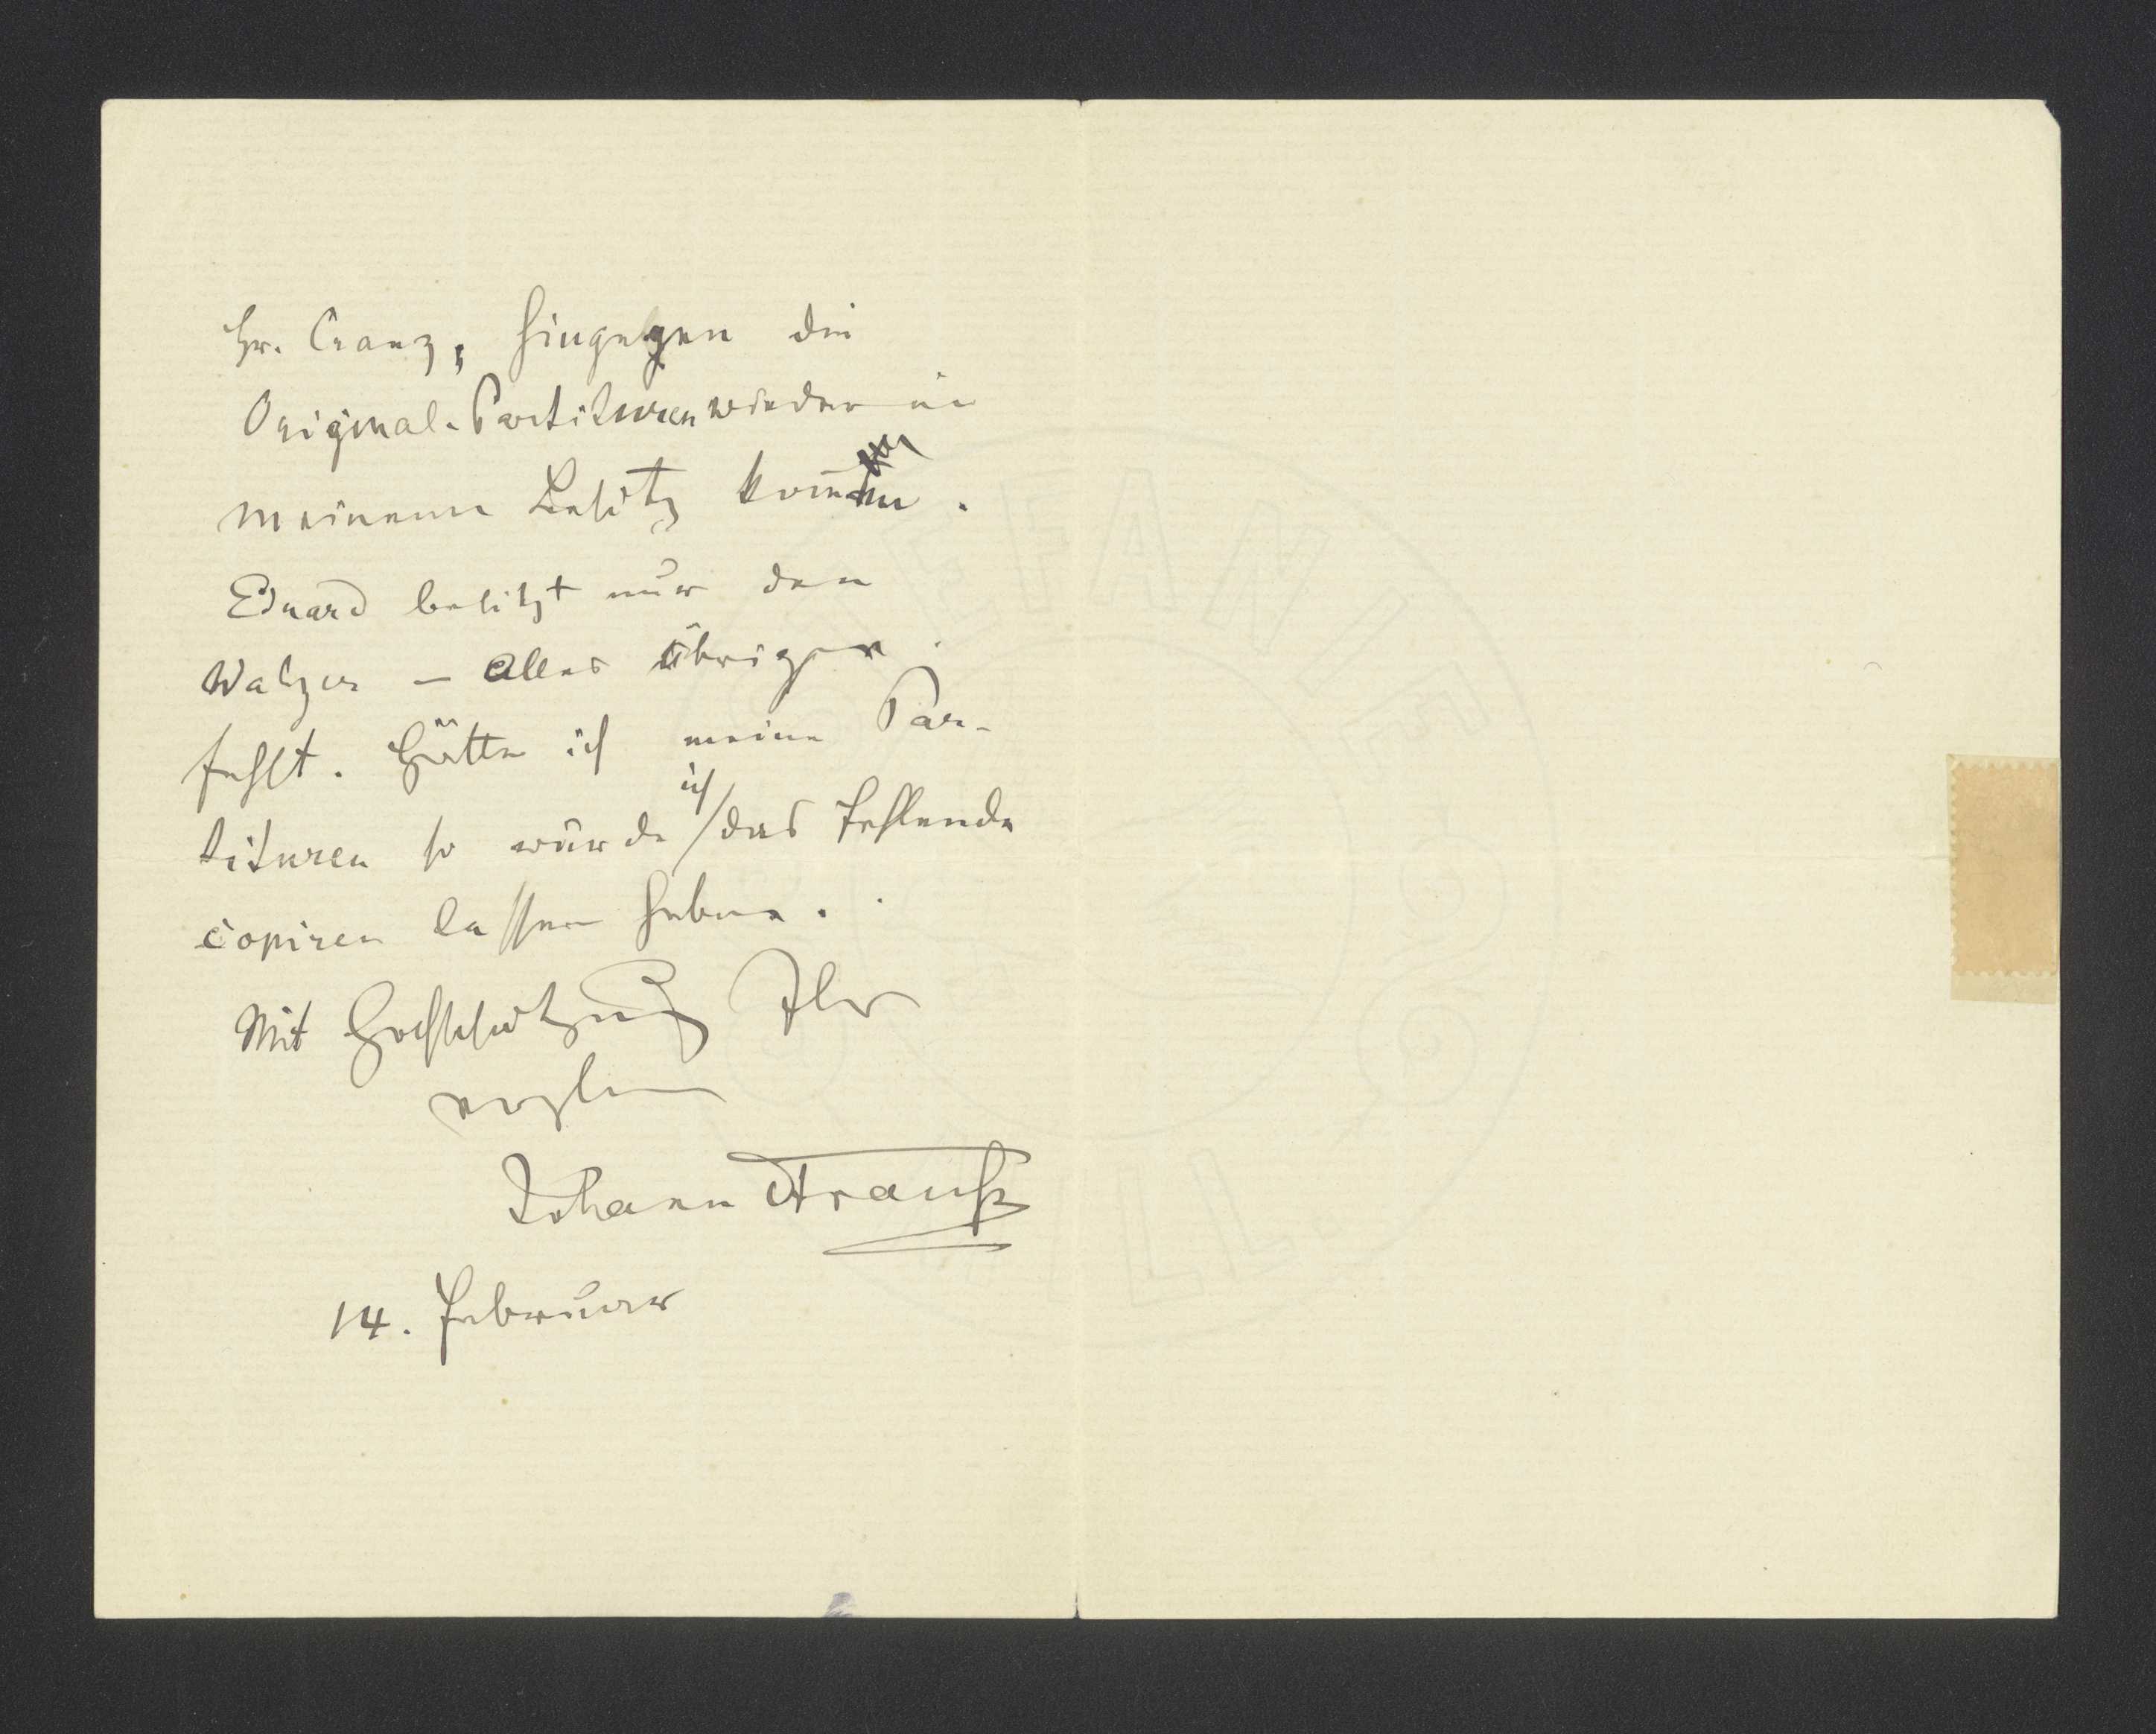 Hr. Cranz, hingegen die
Original-Partituren wieder in
meinem Besitz kommen.
Eduard besitzt nur den
Walzer – Alles übrige
fehlt. Hätte ich meine Par-
tituren so würde ich das Fehlende
copiren lassen haben.
Mit Hochschätzung Ihr
ergebener
Johann Strauß
14. Februar
STEFANIE
MILL